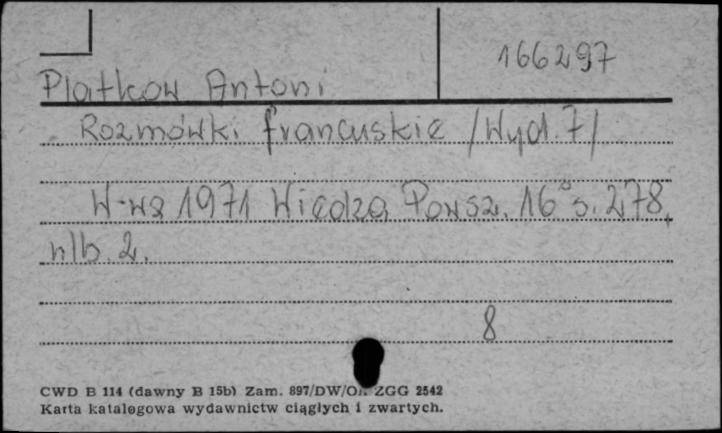 166297
Platkow Antoni
Rozmówki francuskie /Wyd. 7/
W-wa 1971 Wiedza Powsz. 16° s. 278,
nlb. 2.
8
CWD B 114 (dawny B 15b) Zam. 897/DW/O/. ZGG 2542
Karta katalogowa wydawnictw ciągłych i zwartych.